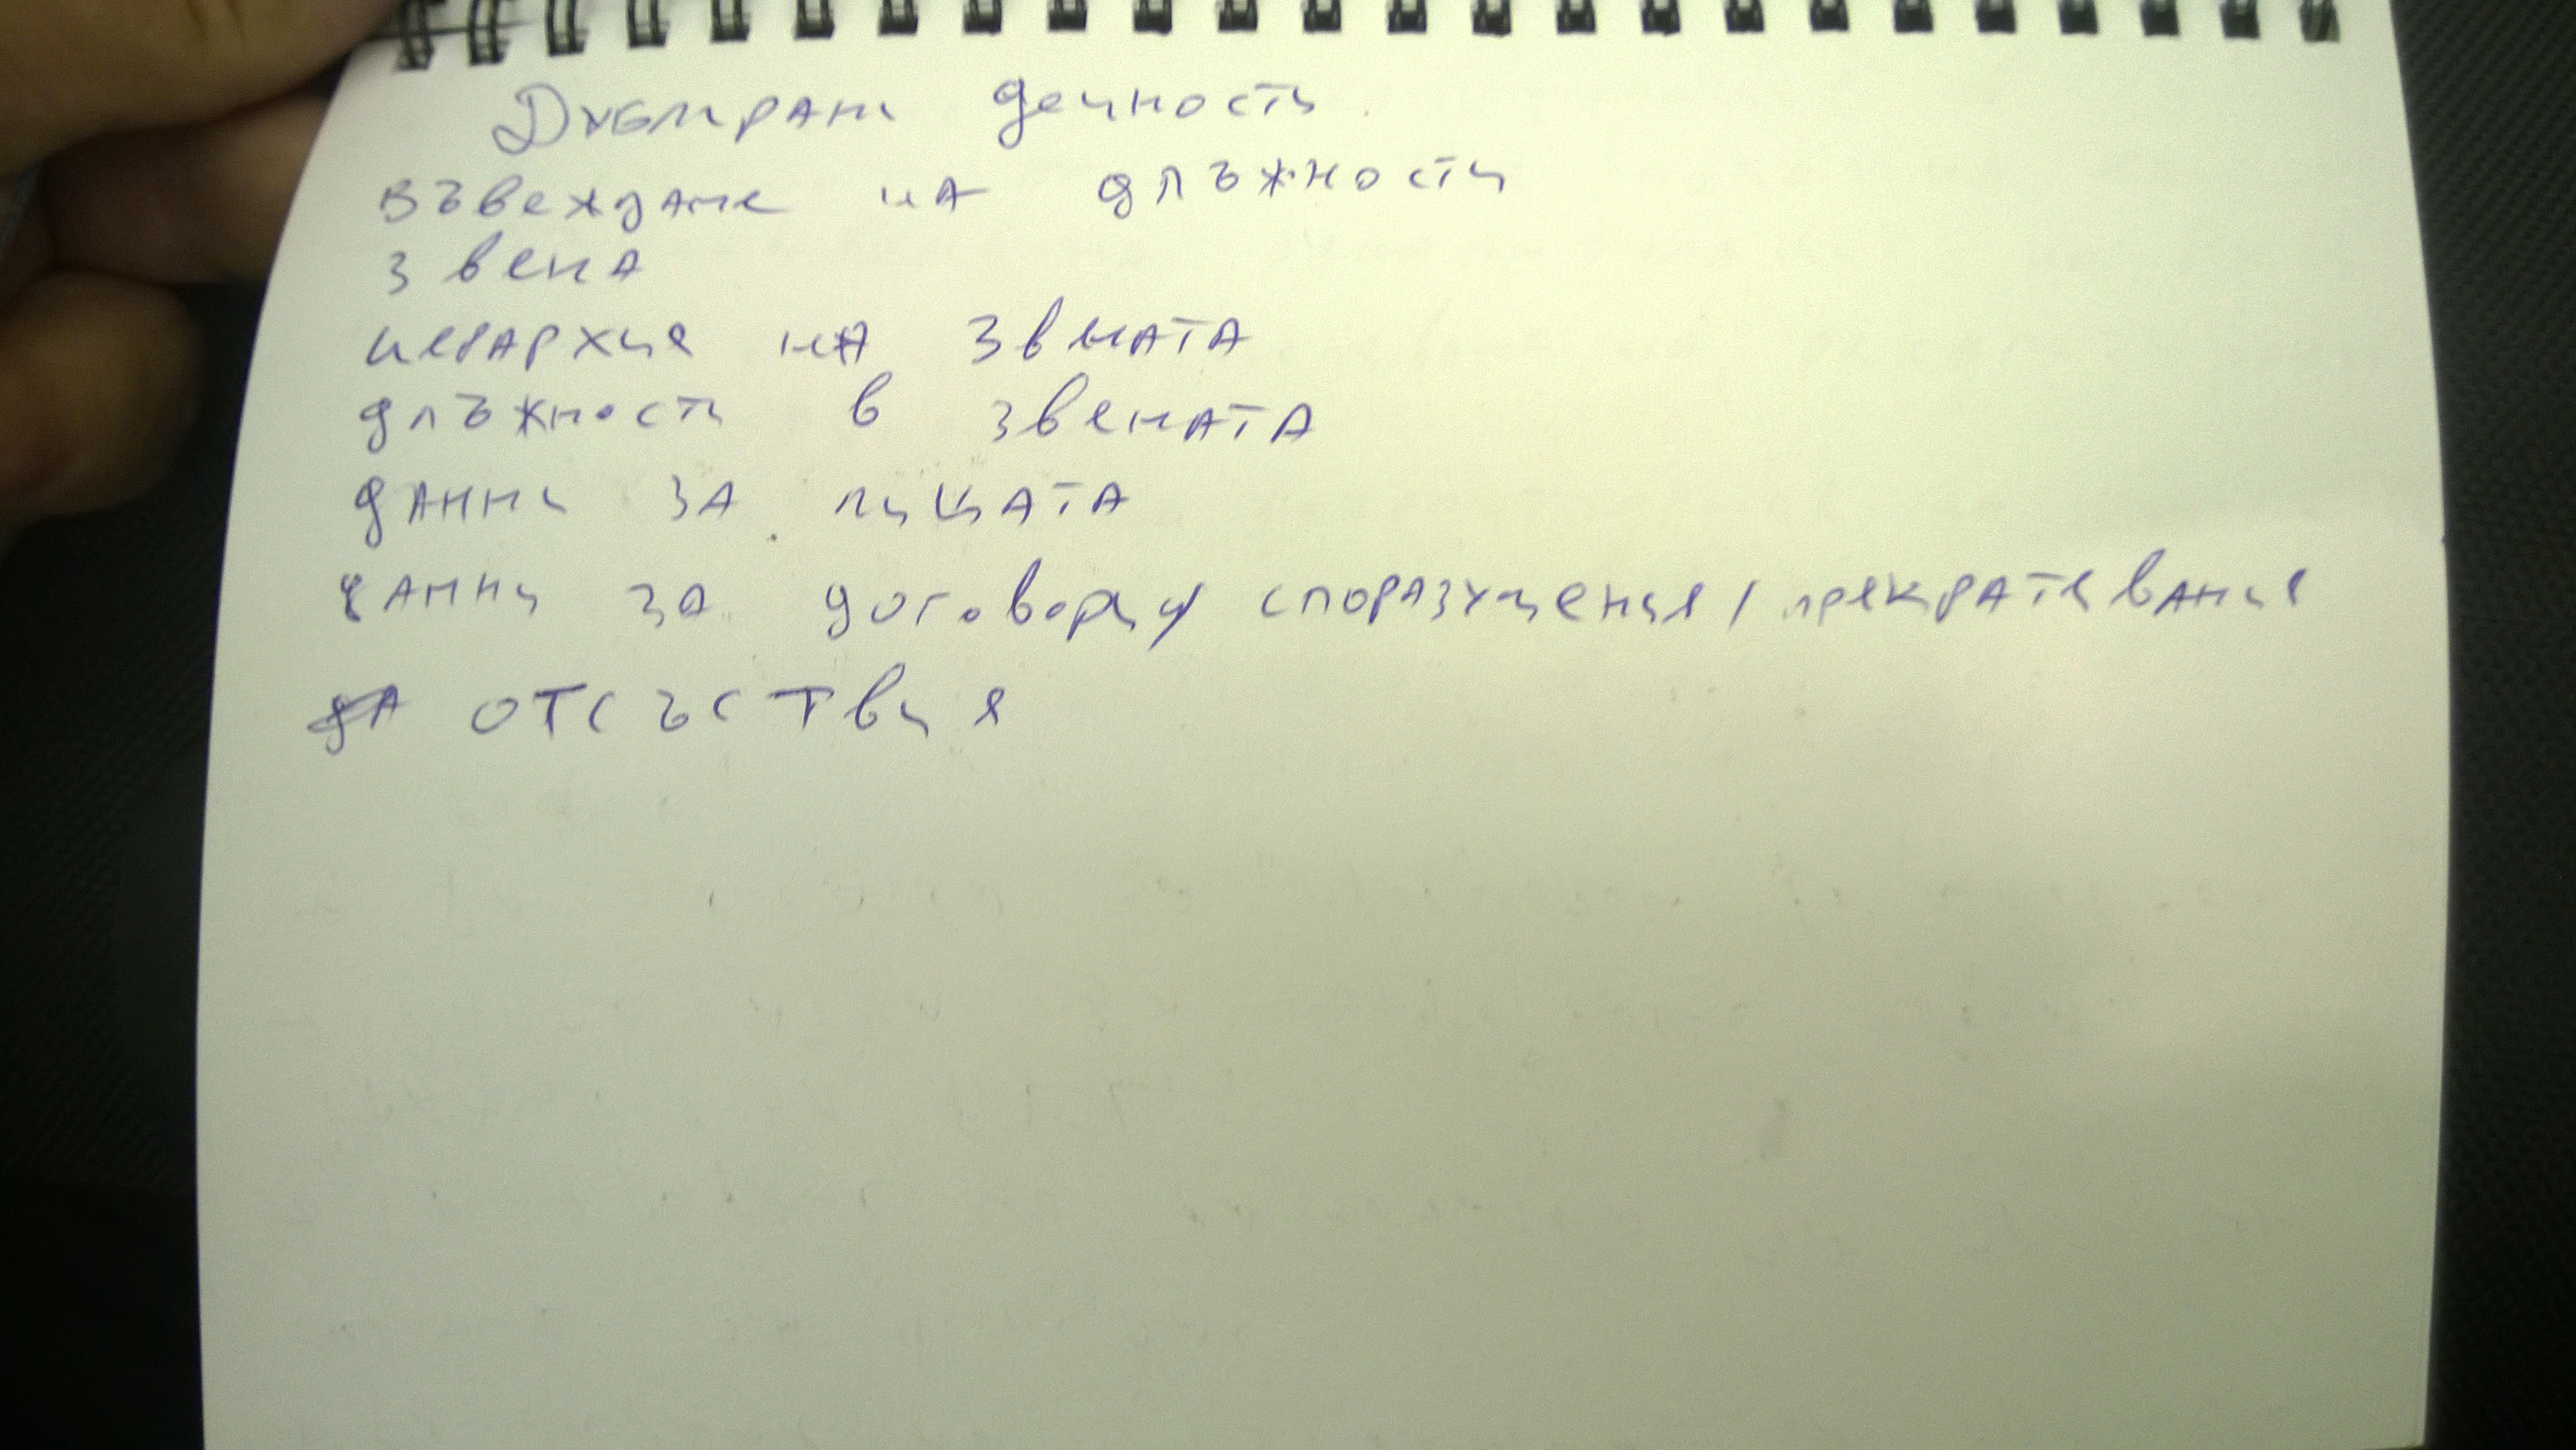 Дублирани дейности
Въвеждане на длъжности
звена
иерархия на звената
длъжности в звената
данни за лицата
данни за договори/ споразумения/ прекратявания
отсъствия